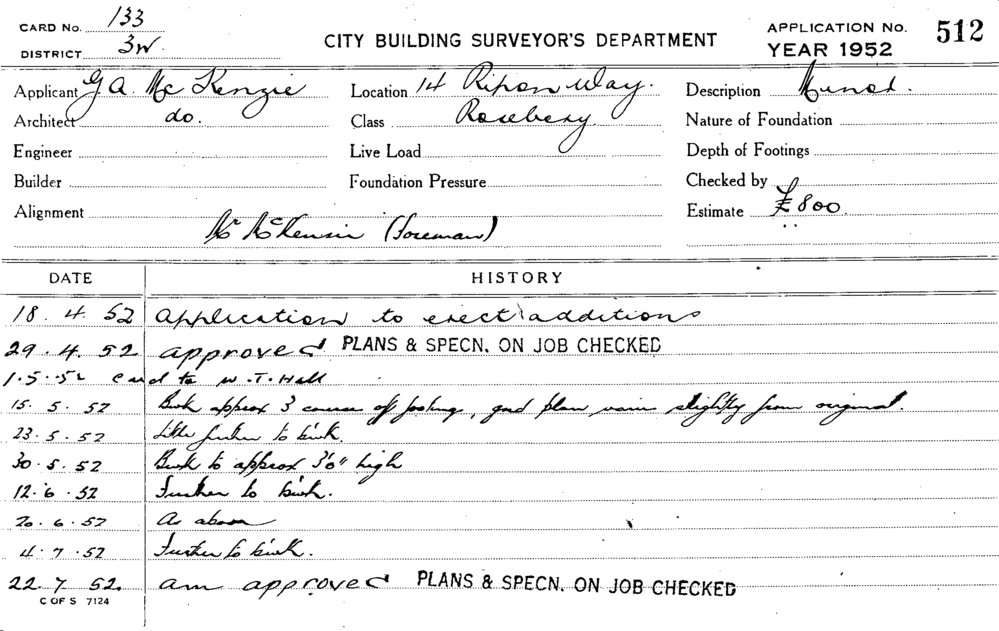 CARD No. 133
DISTRICT 3W.
CITY BUILDING SURVEYOR'S DEPARTMENT
APPLICATION No. 512
YEAR 1952
Applicant G A. McKenzie Location 14 Ripon Way. Description
Architect do. Class Rosebery Nature of Foundation
Engineer Live Load Depth of Footings
Builder Foundation Pressure Checked by
Alignment Estimate £800
Mr McKensie (Foreman)
DATE HISTORY
18. 4. 52 Application to erect additions
29. 4. 52 approved PLANS & SPECN. ON JOB CHECKED
1.5.52 card to W.T. Hall
15. 5. 52 Bwk approx 3 course off footing, gnd plan varies slightly from original.
23. 5. 52 Little further to bwk.
30. 5. 52 Bwk to approx 3'0" high
12. 6. 52 Further to bwk.
20. 6. 52 As above
4. 7. 52 Further to bwk.
22. 7 52. am approved PLANS & SPECN. ON JOB CHECKED
C OF S 7124